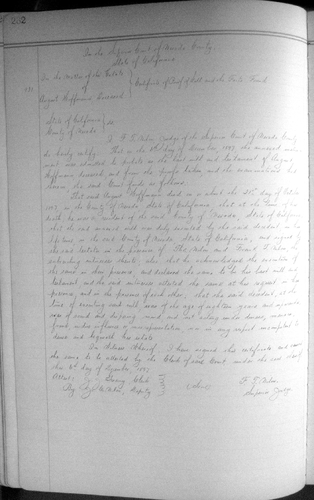 252
In the Superior Court of Nevada County
State of California
In the Matter of the Estate
of
August Hoffmann Deceased
Certificate of Proof of Will and the Facts Found
State of California
County of Nevada
ss
I, F. T. Nilon, Judge of the Superior Court of Nevada County
do hereby certify: That on the day of December, 1897, the annexed
was admitted to probate as the last will and testament of August
Hoffmann deceased, and from the proofs taken and the examination had
therein, the said Court finds as follows:
That said August Hoffmann died on or about the 21st day of October
1897, in the County of Nevada, State of California, that at the time of his
death he was a resident of the said County of Nevada, State of California
that the said annexed will was duly executed by the said decedent, in his
lifetime in the said County of Nevada State of California, and signed by
the said testator in the presence of and
subscribing witnesses thereto; also that he acknowledged the execution of
the same in their presence, and declared the same to be his last will and
testament and the said witnesses attested the same at his request in his
presence, and in the presence of each other; that the said decedent, at the
time of executing said will, was of the age of eighteen years and upwards
was of sound and disposing mind, and not acting under duress, menace,
fraud, undue influence or misrepresentation, nor in any respect incompetent to
devise and bequeath his estate.
In Witness Whereof, I have signed this certificate and caused
the same to be attested by the Clerk of said Court under the seal thereof
this day of December, 1897.
Attest: Clerk
By Deputy
F. T. Nilon
Superior Judge